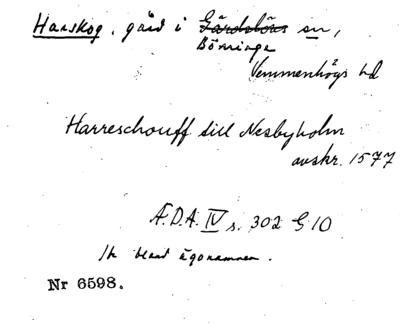 Harskog, gård i Gärdslövs sn,
Börringe
Vemmenhögs hd
Harreschouff till Nesbyholm
avskr. 1577
Æ.D.A. IV s. 302 G 10
Jfr bland ägonamnen.
Nr 6598.